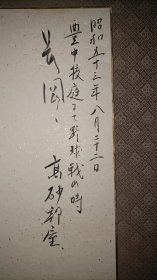 昭和五十三年八月二十二日
豊中校庭にて野球戦の時
長岡、高砂部屋